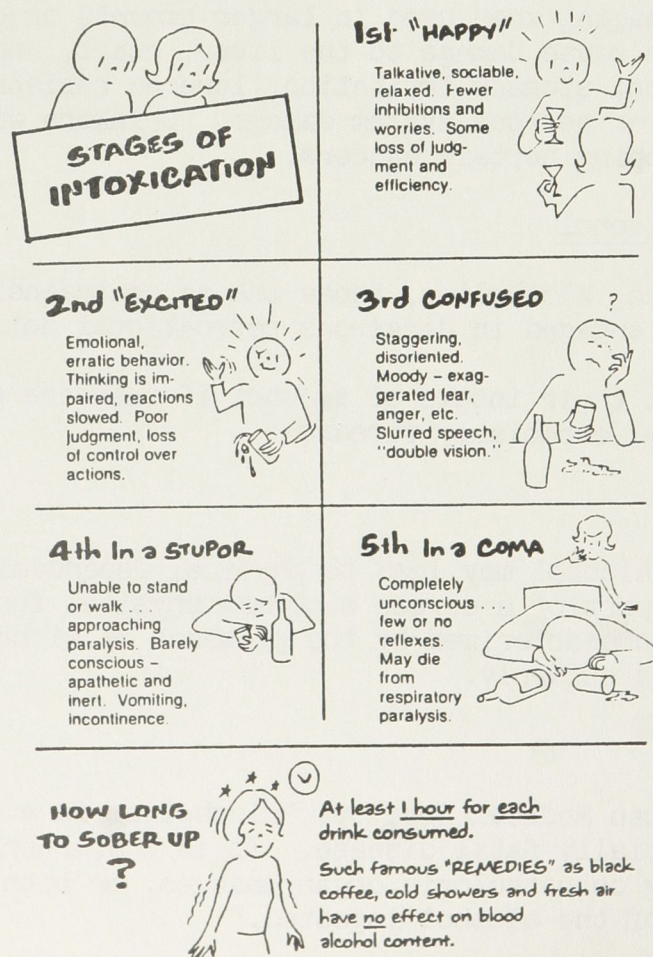 STAGES OF
INTOXICATION
1st "HAPPY"
Talkative, sociable,
relaxed. Fewer
inhibitions and
worries. Some
loss of judg-
ment and
efficiency.
2nd "EXCITED"
Emotional,
erratic behavior.
Thinking is im-
paired, reactions
slowed. Poor
judgment, loss
of control over
actions.
3rd CONFUSED
?
Staggering,
disoriented.
Moody – exag-
gerated fear,
anger, etc.
Slurred speech,
"double vision."
4th In a STUPOR
Unable to stand
or walk . . .
approaching
paralysis. Barely
conscious –
apathetic and
inert. Vomiting,
incontinence.
5th In a COMA
Completely
unconscious . . .
few or no
reflexes.
May die
from
respiratory
paralysis.
HOW LONG
TO SOBER UP
?
At least 1 hour for each
drink consumed.
Such famous "REMEDIES" as black
coffee, cold showers and fresh air
have no effect on blood
alcohol content.